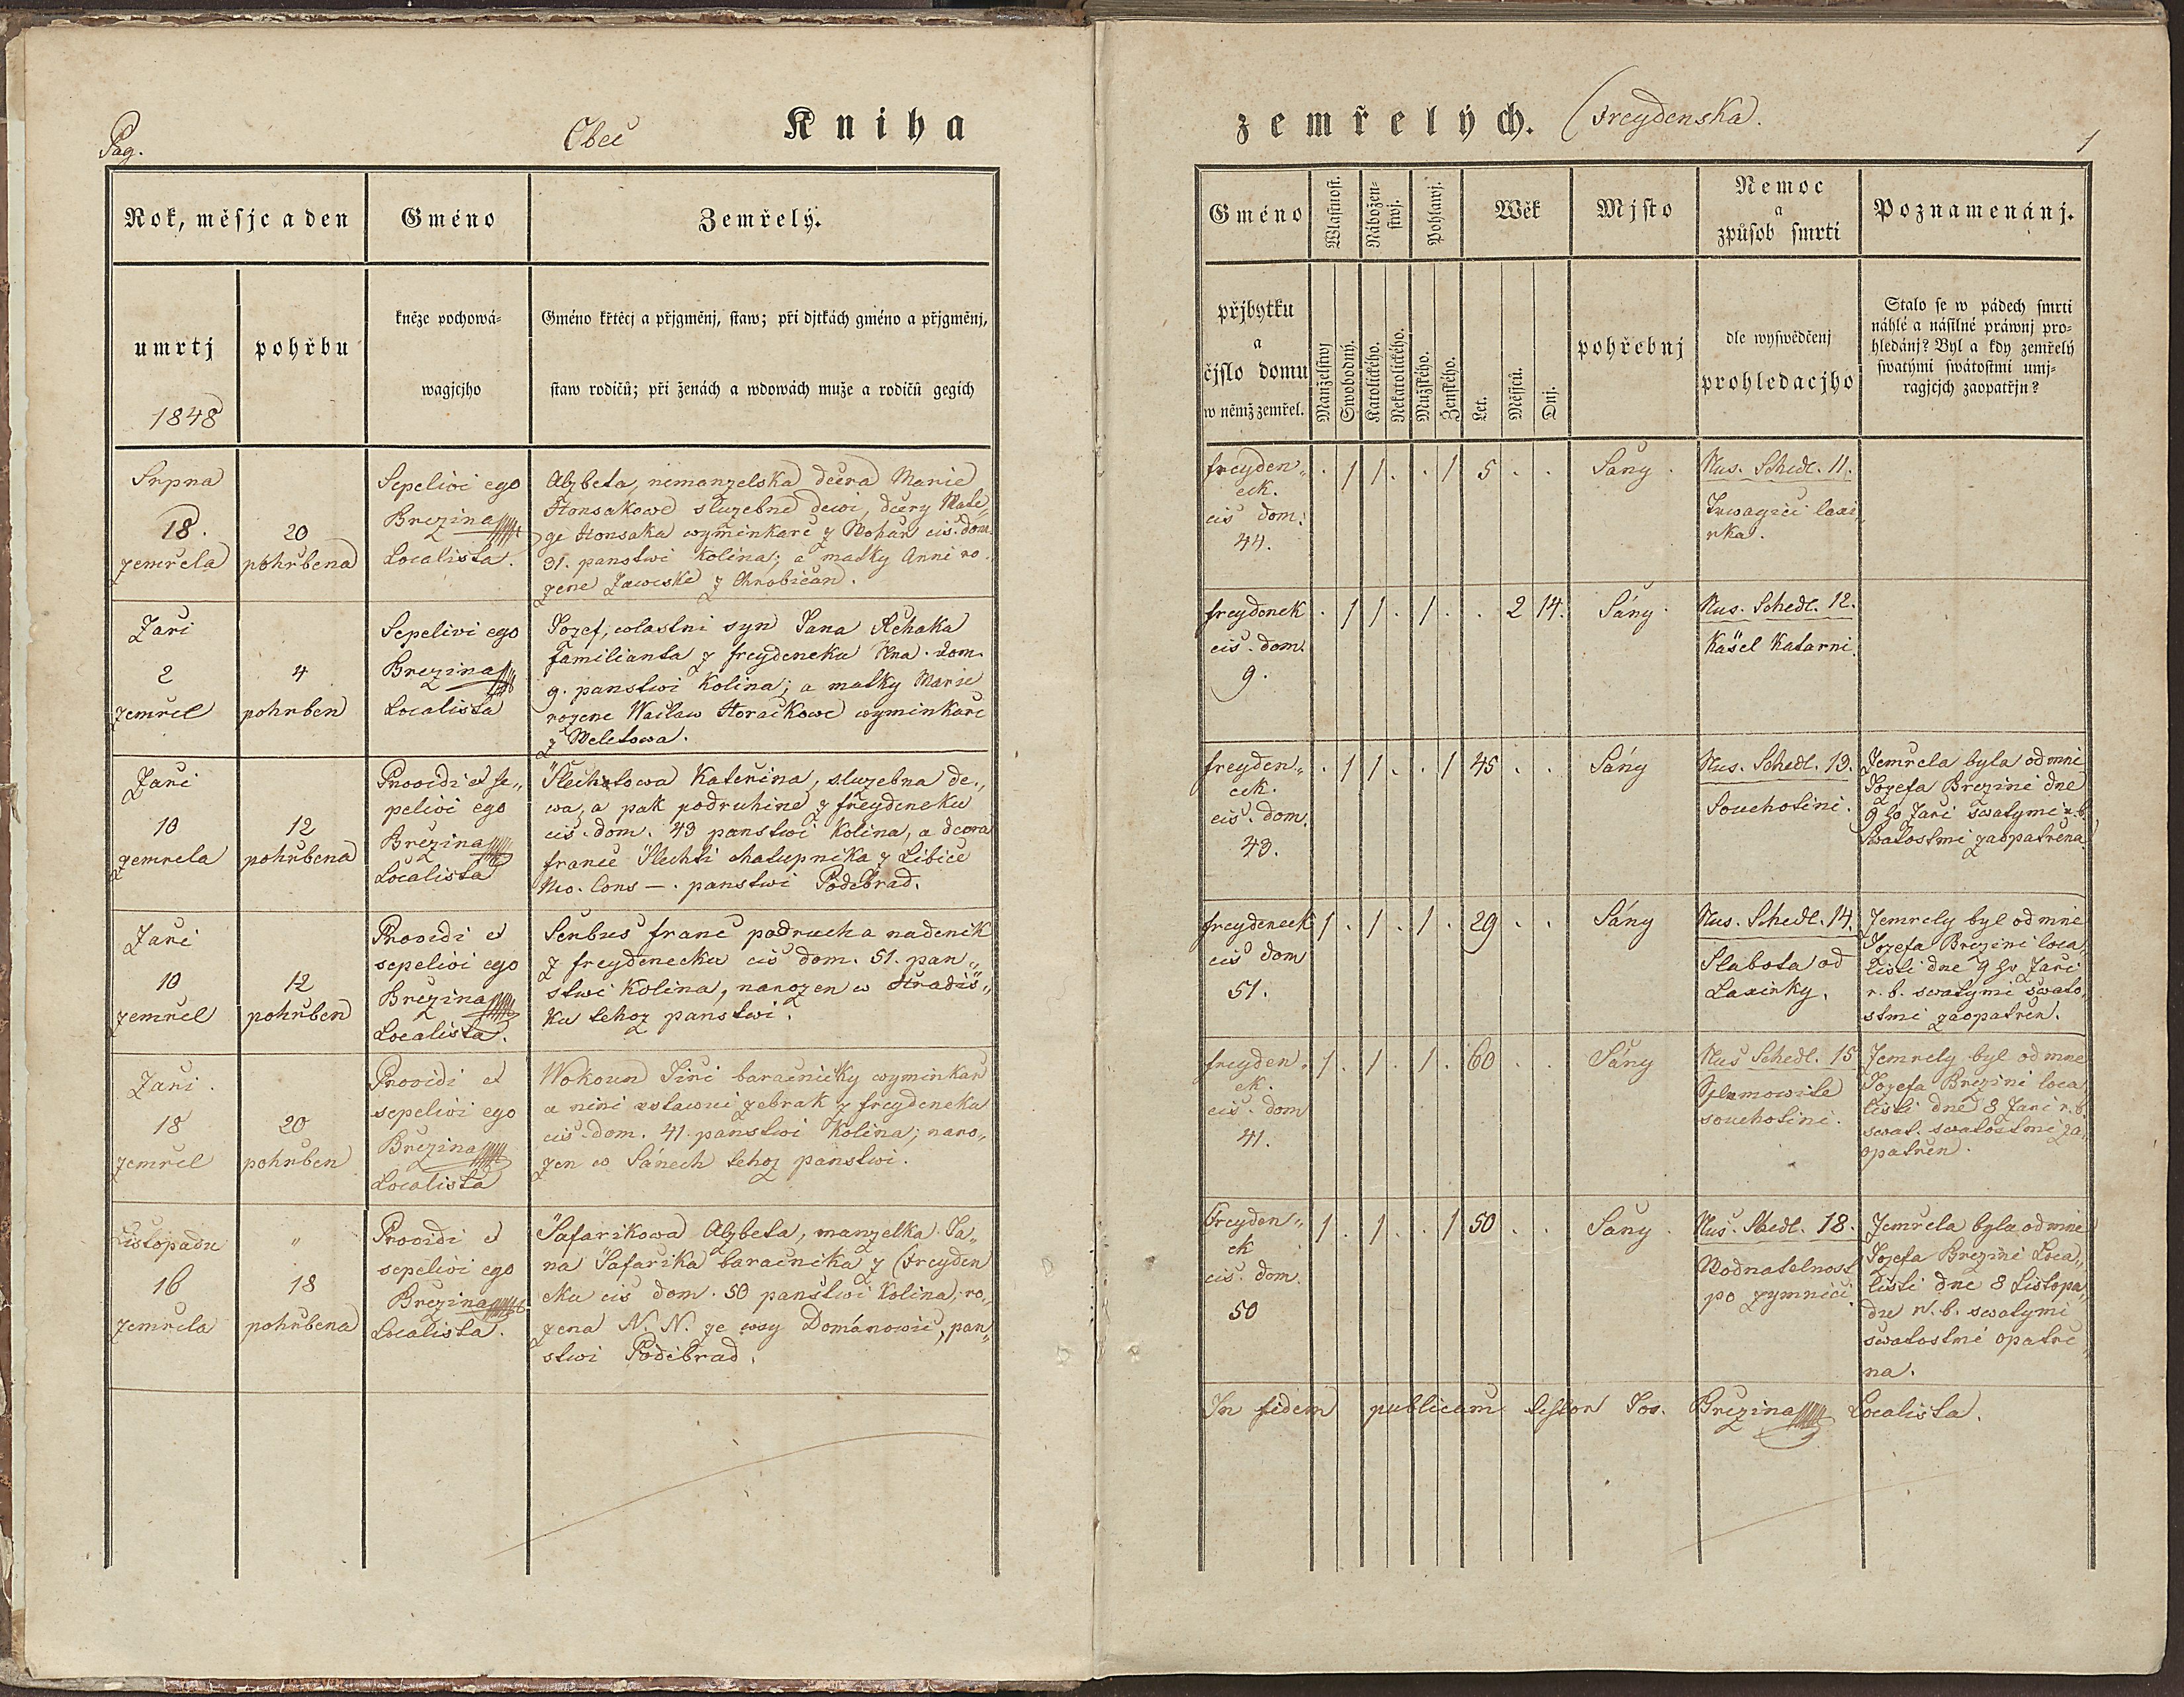 Pag.
Obec
Kniha
Rok, měsjc a den
Gméno
Zemřelý.
umrtj
pohřbu
1848
kněze pochowá-
wagjcjho
Gméno křtěcj a přjgměnj, staw; při djtkách gméno a přjgměnj,
staw rodičů; při ženách a wdowách muže a rodičů gegich
Srpna
18.
zemřela
20
pohřbena
Sepelivi ego
Brezina
Localista.
Alzbeta, nemanzelska dcera Marie
Honsakowe sluzebne dewi, dcery Mate„
ge Honsaka wyminkare z Wohař cis. dom.
31. panstwi Kolina; a matky Anni ro
zene Zawcske z Chrobičan.
Zaři
2
zemřel
4
pohrben
Sepelivi ego
Brezina
Localista
Jozef, wlastni syn Jana Rchaka
Familianta z freydeneku Nna. dom.
9. panstwi Kolina; a matky Marie
rozene Waclaw Horačkowe wyminkaře
z Weletowa.
Zaři
10
zemrela
12
pohrbena
Providi et se„
pelivi ego
Brezina
Localista
Šlechtowa Kateřina, sluzebna de„
wa, a pak podruhine z freydeneku
cis. dom. 43 panstwi Kolina, a dcera
france Šlechti chalupnika z Libice
Nro. Cons —. panstwi Poděbrad.
Zaři
10
zemřel
12
pohrben
Providi et
sepelivi ego
Brezina
Localista.
Serbus franc podruch a nadenik
z freydenecku cis dom. 51. pan„
stwi Kolina, narozen w Hradiš„
ku tehoz panstwi.
Zaři.
18
zemřel
20
pohrben
Providi et
sepelivi ego
Brezina
Localista
Wokoun Jiři baračnicky wyminkař
a nini zebrak z freydeneku
cis. dom. 41. panstwi Kolina; naro„
zen w Sánech tehoz panstwi.
Listopadu
16
zemřela
"
18
pohřbena
Providi et
sepelivi ego
Brezina
Localista.
Šafarikowa Alzbeta, manzelka Ja„
na Šafarika baračnika z Freyden
eku cis dom. 50 panstwi Kolina, ro„
zena N. N. ze wsy Dománowic, pan„
stwi Poděbrad.
zemřelých.
Freydenska.
1
Gméno
Wlastnost.
Nábožen-
stwj.
Pohlawj.
Wěk
Mjsto
Nemoc
a
způsob smrti
Poznamenánj.
přjbytku
a
čjslo domu
w němž zemřel.
Manželstwj
Swobodný.
Katolického.
Nekatolického.
Mužského.
Ženského.
Let.
Měsjců.
Dnj.
pohřebnj
dle wyswědčenj
prohledacjho
Stalo se w pádech smrti
náhlé a násilné práwnj pro-
hledánj? Byl a kdy zemřelý
swatými swátostmi umj-
ragjcjch zaopatřjn?
freyden„
eck.
cis dom.
44.
. 1 1 . . 1 5 . .
Sany.
Nus. Schedl. 11.
Trwagici laxi„
rka.
freydenek
cis. dom.
9.
. 1 1 . 1 . . 2 14.
Sány.
Nus. Schedl. 12.
Kašel Katarni.
freyden„
eck.
cis. dom.
43.
. 1 1 . . 1 45 . .
Sány
Nus. Schedl. 13.
Souchotini.
Zemrela byla od mni
Jozefa Brezini dne
9 ho Zaři swatymi r. b.
Swatostmi zaopatřena.
freydeneck
cis dom
51.
1 . 1 . 1 . 29 . .
Sány
Nus. Schedl. 14.
Slabota od
Laxirky.
Zemrely byl od mne
Jozefa Brezini loca
listi dne 9 ho Zaři
r. b. swatymi swato„
stmi zaopatřen.
freyden„
ek.
cis. dom
41.
1 . 1 . 1 . 60 . .
Sány
Nus Schedl. 15
souchotini.
Zemrely byl od mne
Jozefa Brezini loca
listi dne 8 Zari r. b.
swat. swatostmi za„
opatřen.
Freyden„
ek
cis. dom.
50
1 . 1 . . 1 50 . .
Sány.
Nus. Schedl. 18.
Wodnatelnost
po zymnici
Zemřela byla od mne
Jozefa Brezini Loca„
listi dne 8 Listopa„
du r. b. swatymi
swatostmi opatře„
na.
In fidem publicam testor Jos. Brezina Localista.